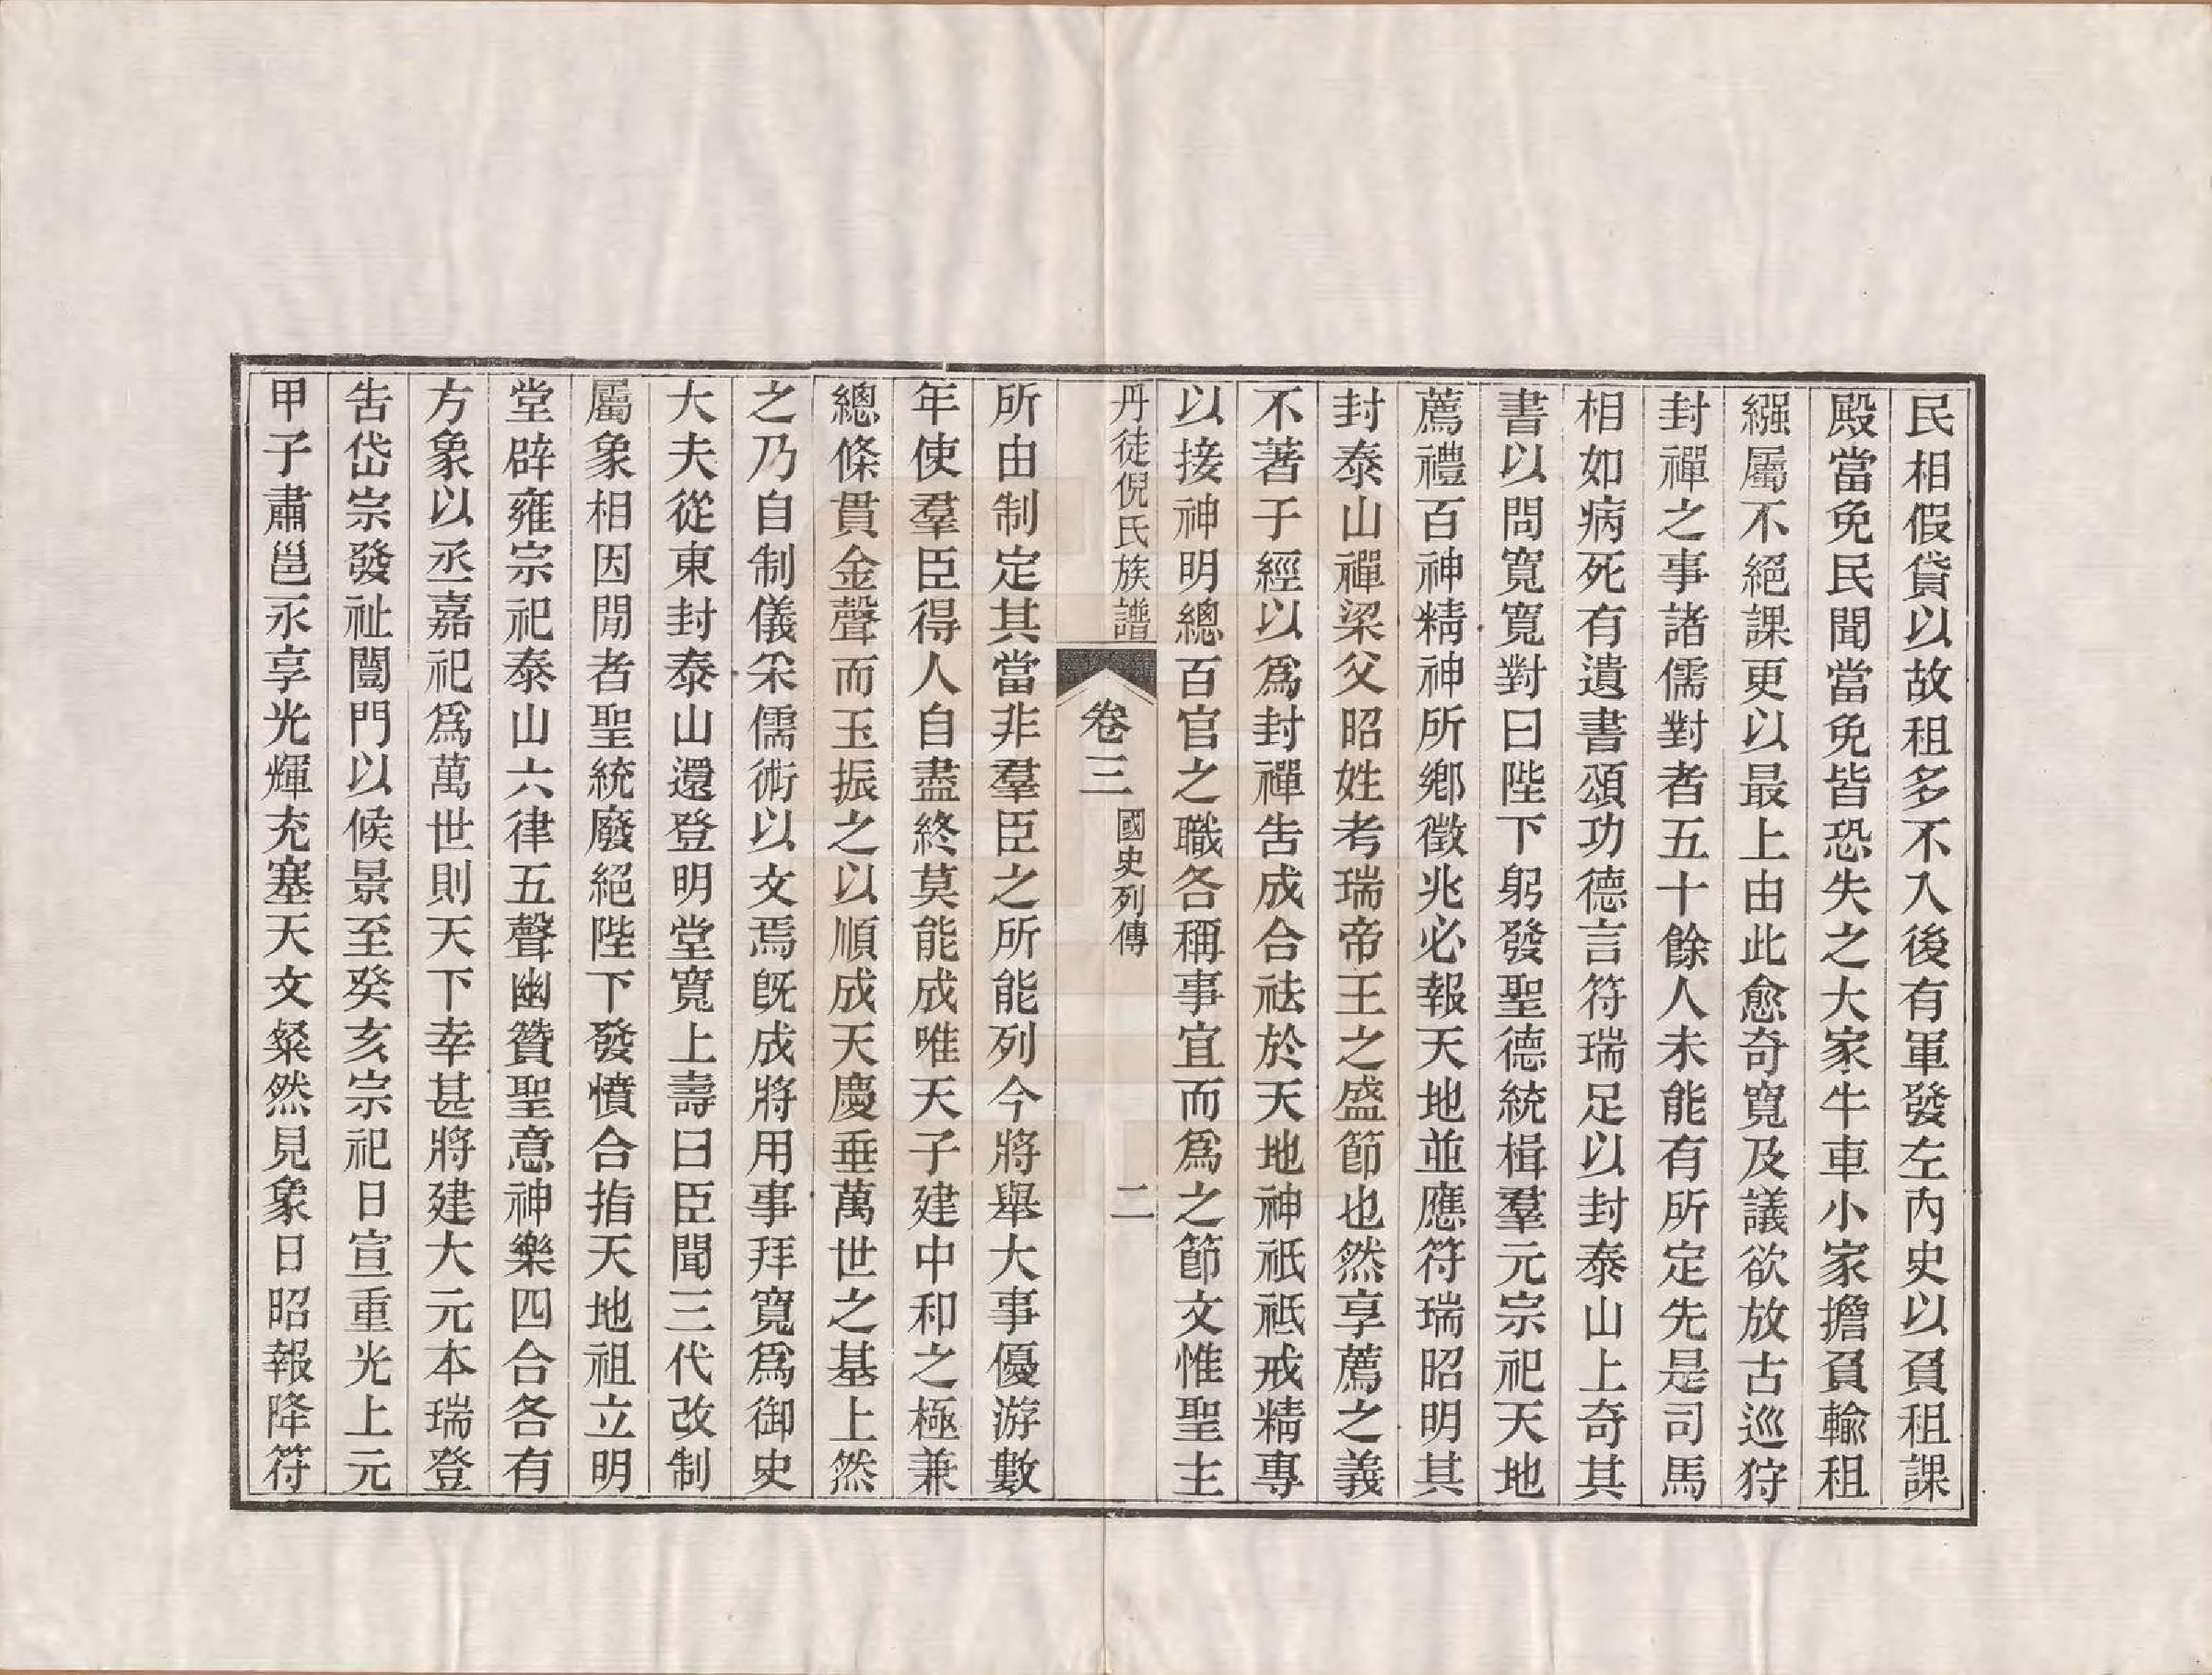 民相假貸以故租多不入後有軍發左內史以負租課
殿當免民聞當免皆恐失之大家牛車小家擔負輸租
繦屬不絕課更以最上由此愈奇寬及議欲放古巡狩
封禪之事諸儒對者五十餘人未能有所定先是司馬
相如病死有遺書頌功德言符瑞足以封泰山上奇其
書以問寬寬對曰陛下躬發聖德統楫羣元宗祀天地
薦禮百神精神所鄉徵兆必報天地並應符瑞昭明其
封泰山禪梁父昭姓考瑞帝王之盛節也然享薦之義
不著于經以爲封禪告成合袪於天地神祇祗戒精專
以接神明總百官之職各稱事宜而爲之節文惟聖主
丹徒倪氏族譜
卷三
國史列傳
二
所由制定其當非羣臣之所能列今將舉大事優游數
年使羣臣得人自盡終莫能成唯天子建中和之極兼
總條貫金聲而玉振之以順成天慶垂萬世之基上然
之乃自制儀采儒術以文焉旣成將用事拜寬爲御史
大夫從東封泰山還登明堂寬上壽曰臣聞三代改制
屬象相因閒者聖統廢絕陛下發憤合指天地祖立明
堂辟雍宗祀泰山六律五聲幽贊聖意神樂四合各有
方象以丞嘉祀爲萬世則天下幸甚將建大元本瑞登
告岱宗發祉闓門以候景至癸亥宗祀日宣重光上元
甲子肅邕永享光輝充塞天文粲然見象日昭報降符